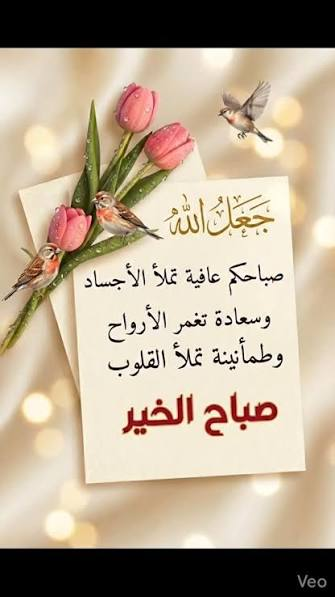 جَعَلُ اللّٰه
صباحكم عافية تملأ الأجساد
وسعادة تغمر الأرواح
وطمأنينة تملأ القلوب
صباح الخير
Veo